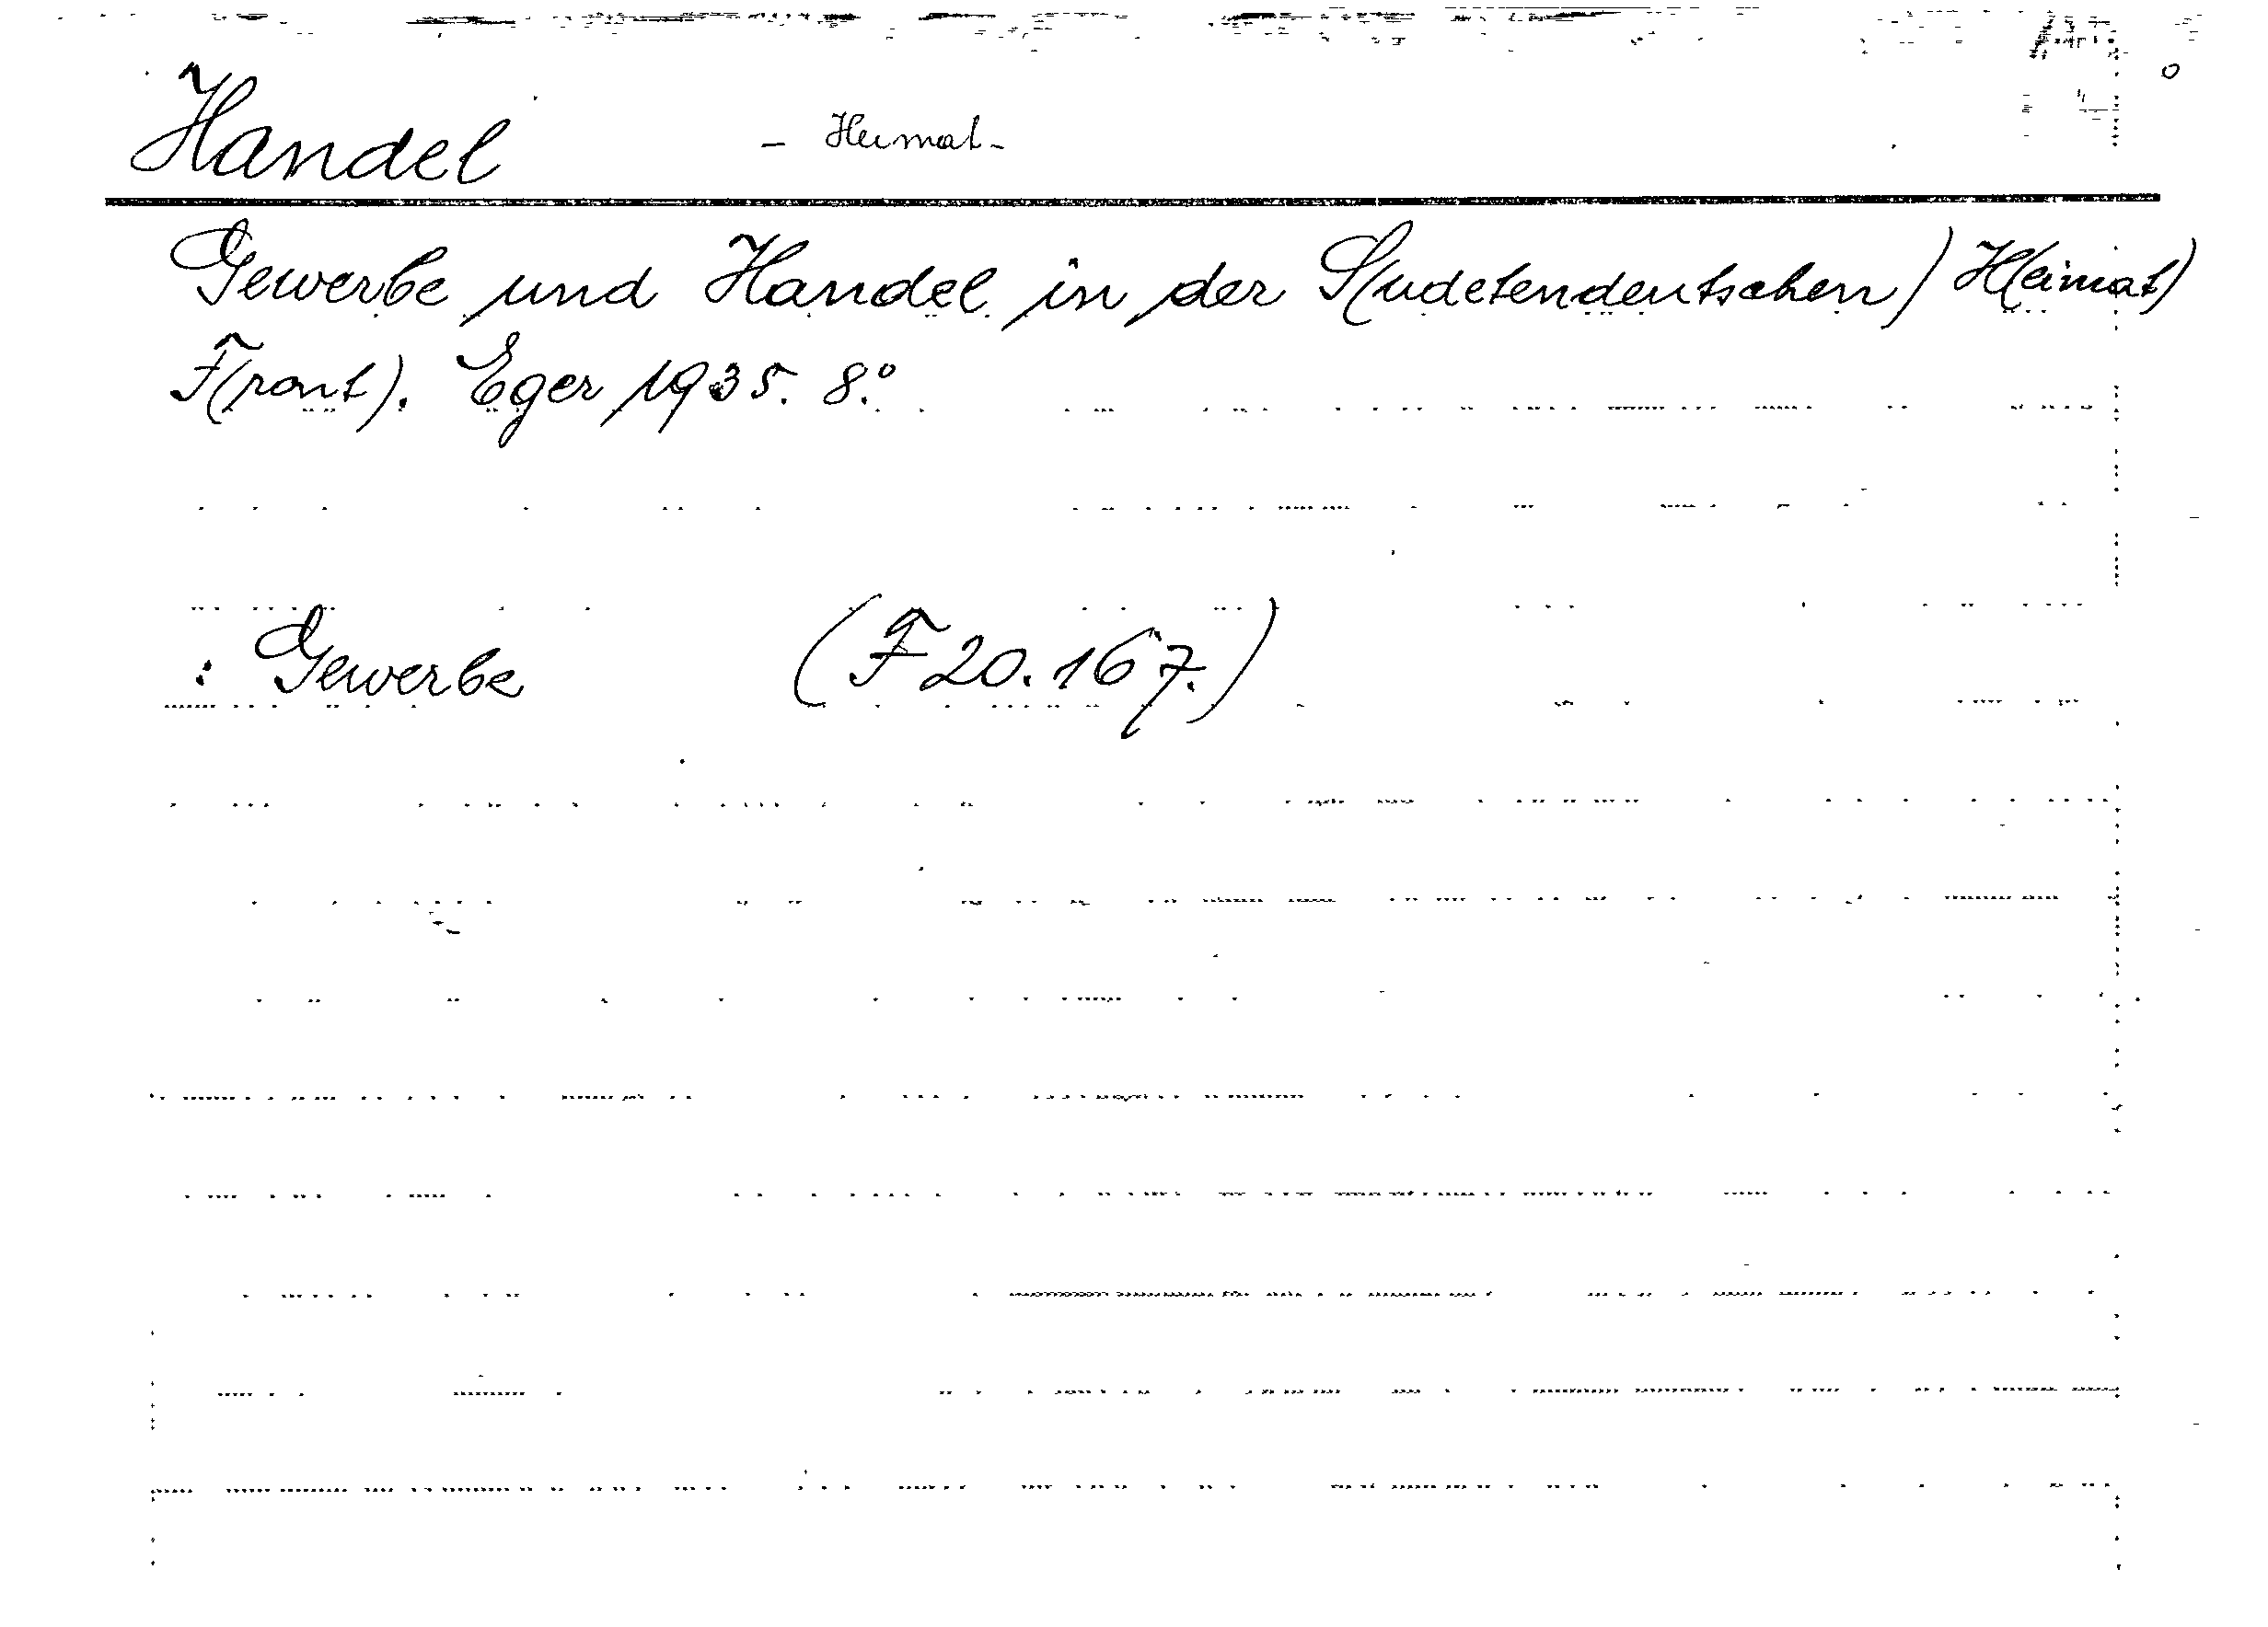 Handel - Heimat -
Gewerbe und Handel in der S(udetendeutschen) H(eimat)
F(ront). Eger 1935. 8.°
: Gewerbe (F 20.167.)